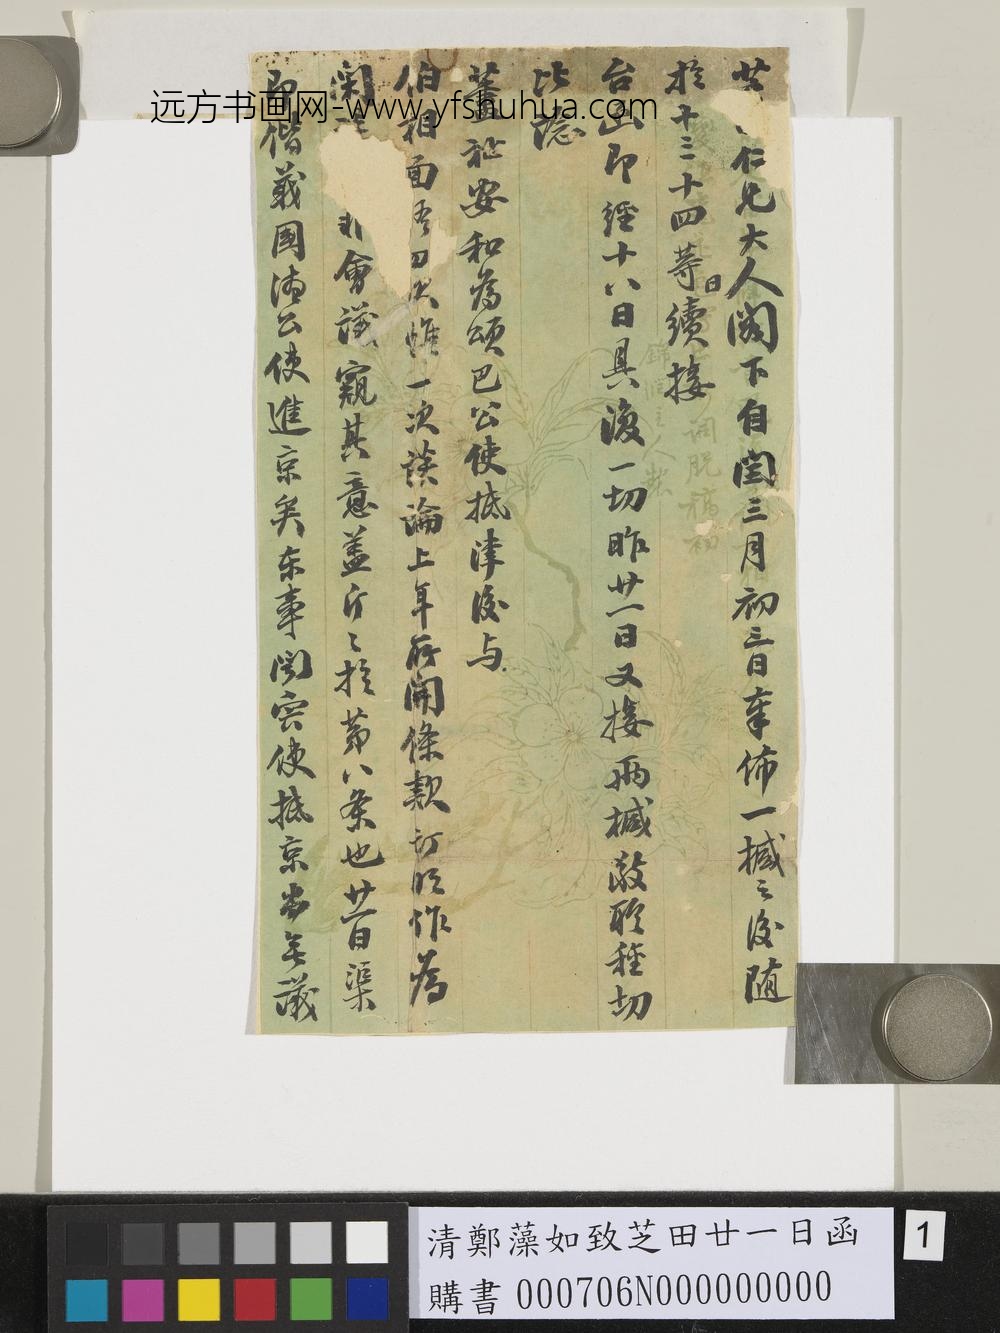 仁兄大人閣下自閏三月初三日奉佈一椷之後随
於十三十四等日續接
台函即經十八日具復一切昨廿一日又接兩椷敬聆種切
比諗
籌祉安和為頌巴公使抵津後与
伯相面晤惟一次談論上年所開條款訂明作為
閑會議窺其意蓋斤々於第八条也廿一日渠
即偕義國公使進京矣东事聞宍使抵京尚无議
詞脫稿初
錦
远方书画网-www.yfshuhua.com
清鄭藻如致芝田廿一日函
購書 000706N000000000
1